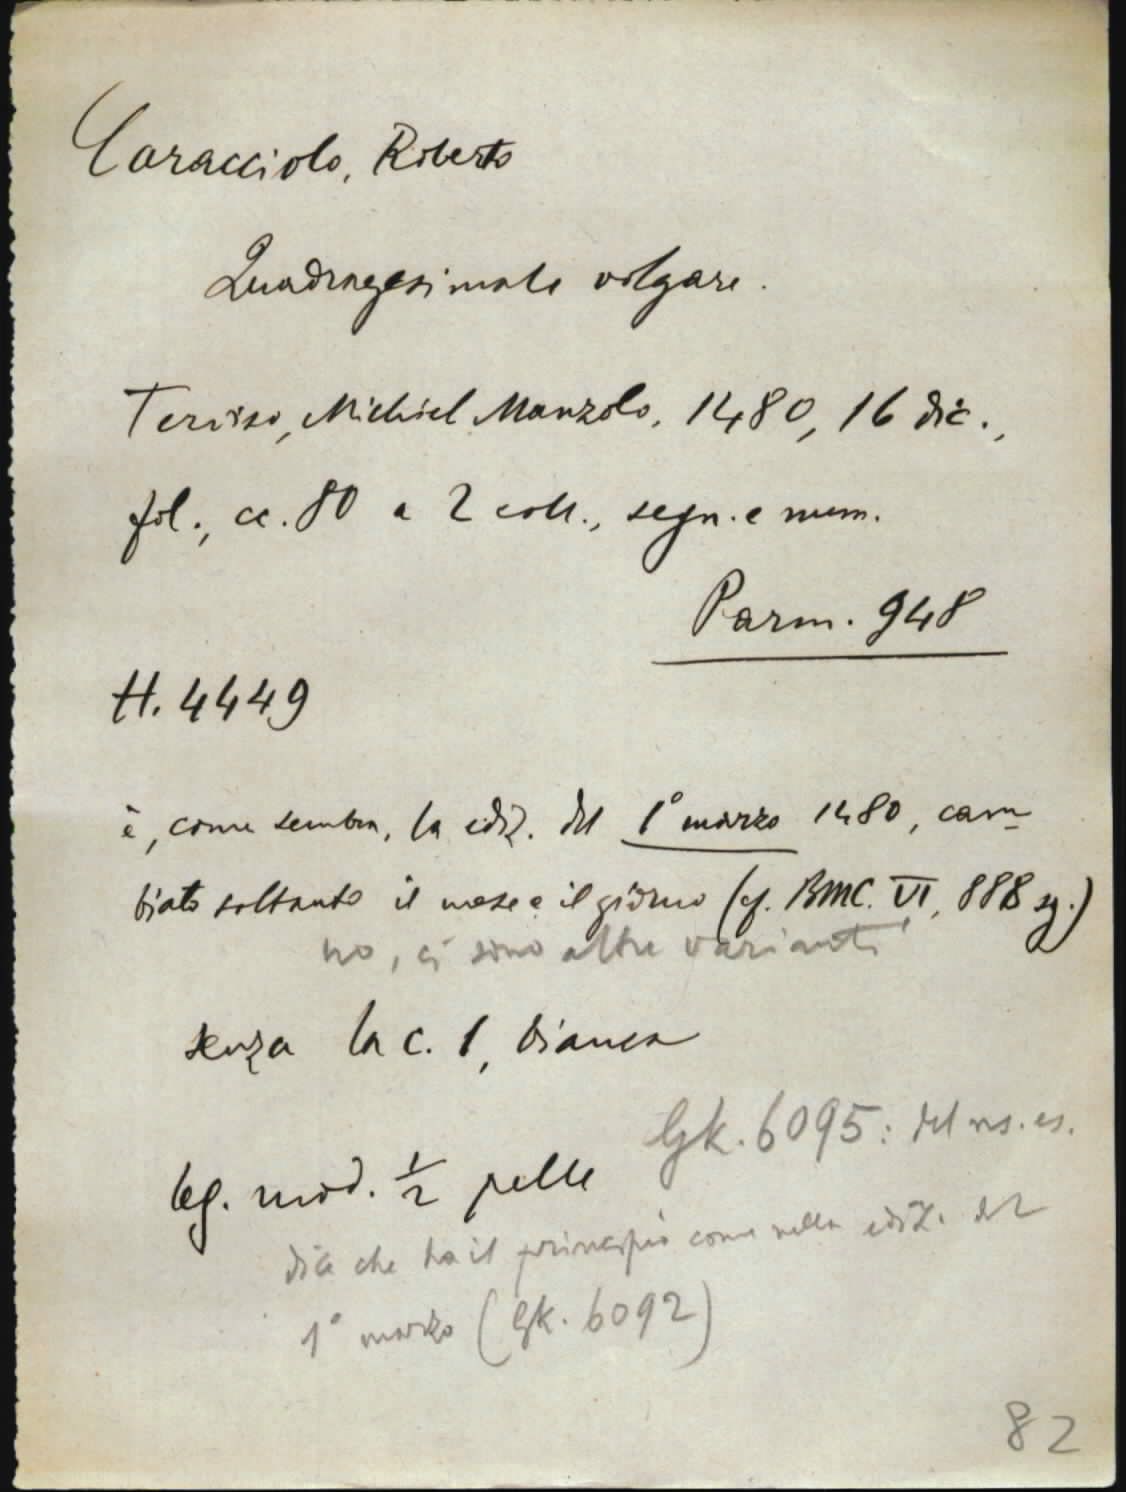 Caracciolo, Roberto
Quadragesimale volgare.
Terviso, Michiel Manzolo, 1480, 16 dic.,
fol., cc. 80 a 2 coll., segn. e num.
Parm. 948
H. 4449
è, come sembra, la ediz. del 1° marzo 1480, cam-
biato soltanto il mese e il giorno (cf. BMC. VI, 888 sg.)
no, ci sono altre varianti
senza la c. 1, bianca
Gk. 6095: del ns. es.
leg. mod. ½ pelle
dice che ha il principio come nella ediz. del
1° marzo (Gk. 6092)
82